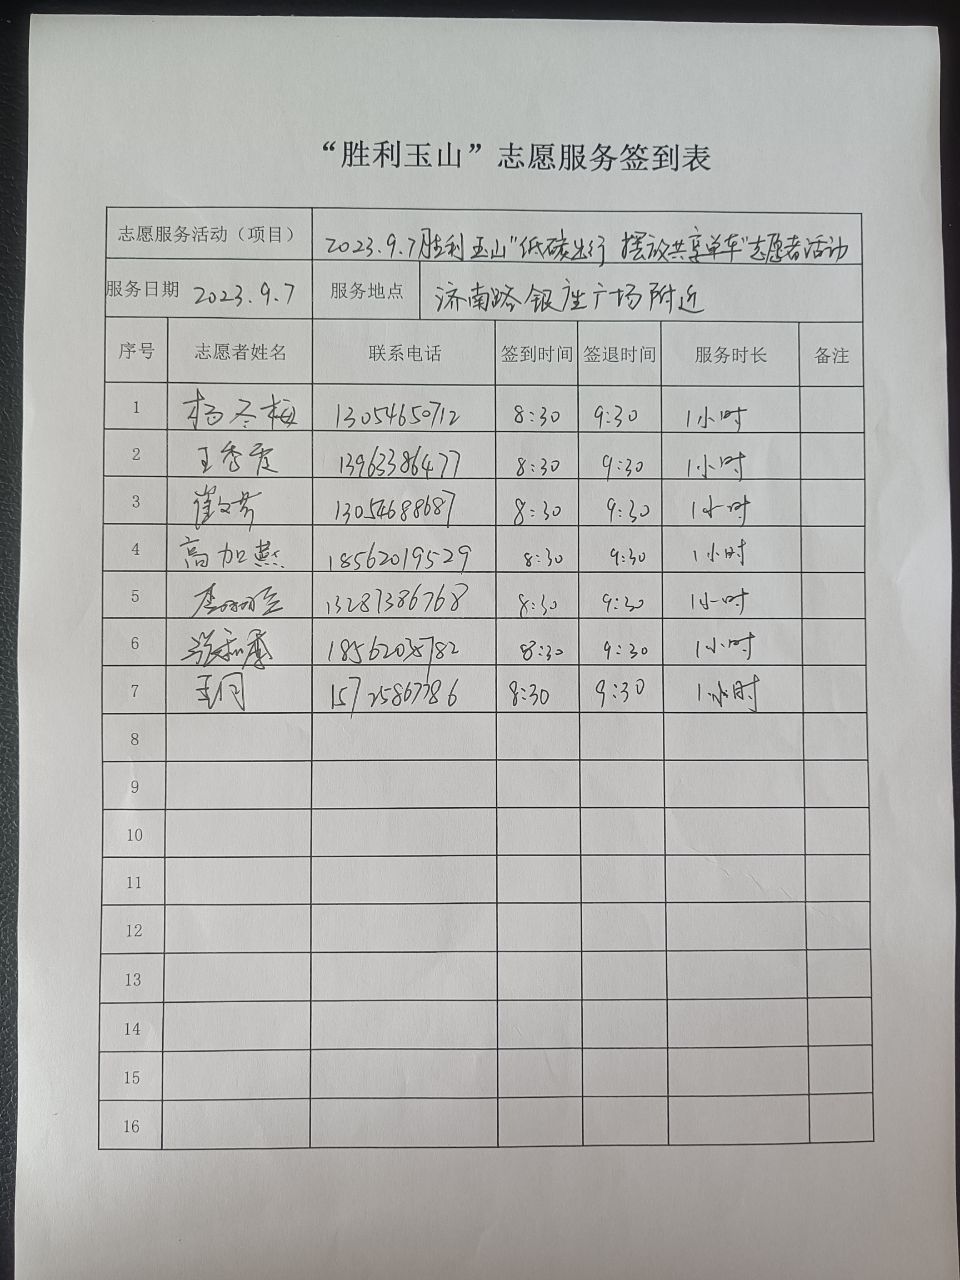 “胜利玉山”志愿服务签到表
志愿服务活动（项目） 2023.9.7胜利玉山“低碳出行 摆放共享单车”志愿者活动
服务日期 2023.9.7 服务地点 济南路银座广场附近
序号 志愿者姓名 联系电话 签到时间 签退时间 服务时长 备注
1 杨冬梅 13054650712 8:30 9:30 1小时
2 王秀霞 13963386477 8:30 9:30 1小时
3 崔文芳 13054688687 8:30 9:30 1小时
4 高加燕 18562019529 8:30 9:30 1小时
5 13287386768 8:30 9:30 1小时
6 8:30 9:30 1小时
7 15725867786 8:30 9:30 1小时
8
9
10
11
12
13
14
15
16